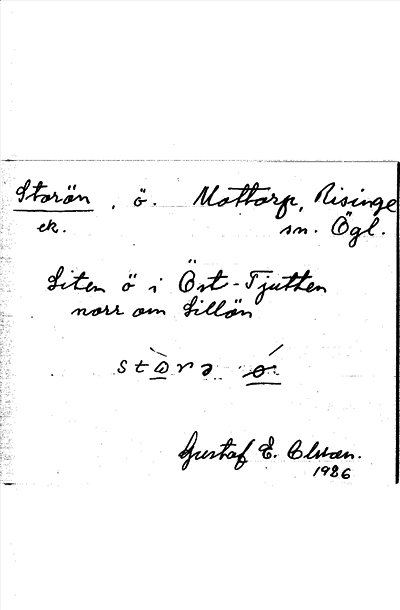 Storön, ö. Mottorp, Risinge
ek. sn. Ögl.
Liten ö i Öst-Tjutten
norr om Lillön
Gustaf E.
1926